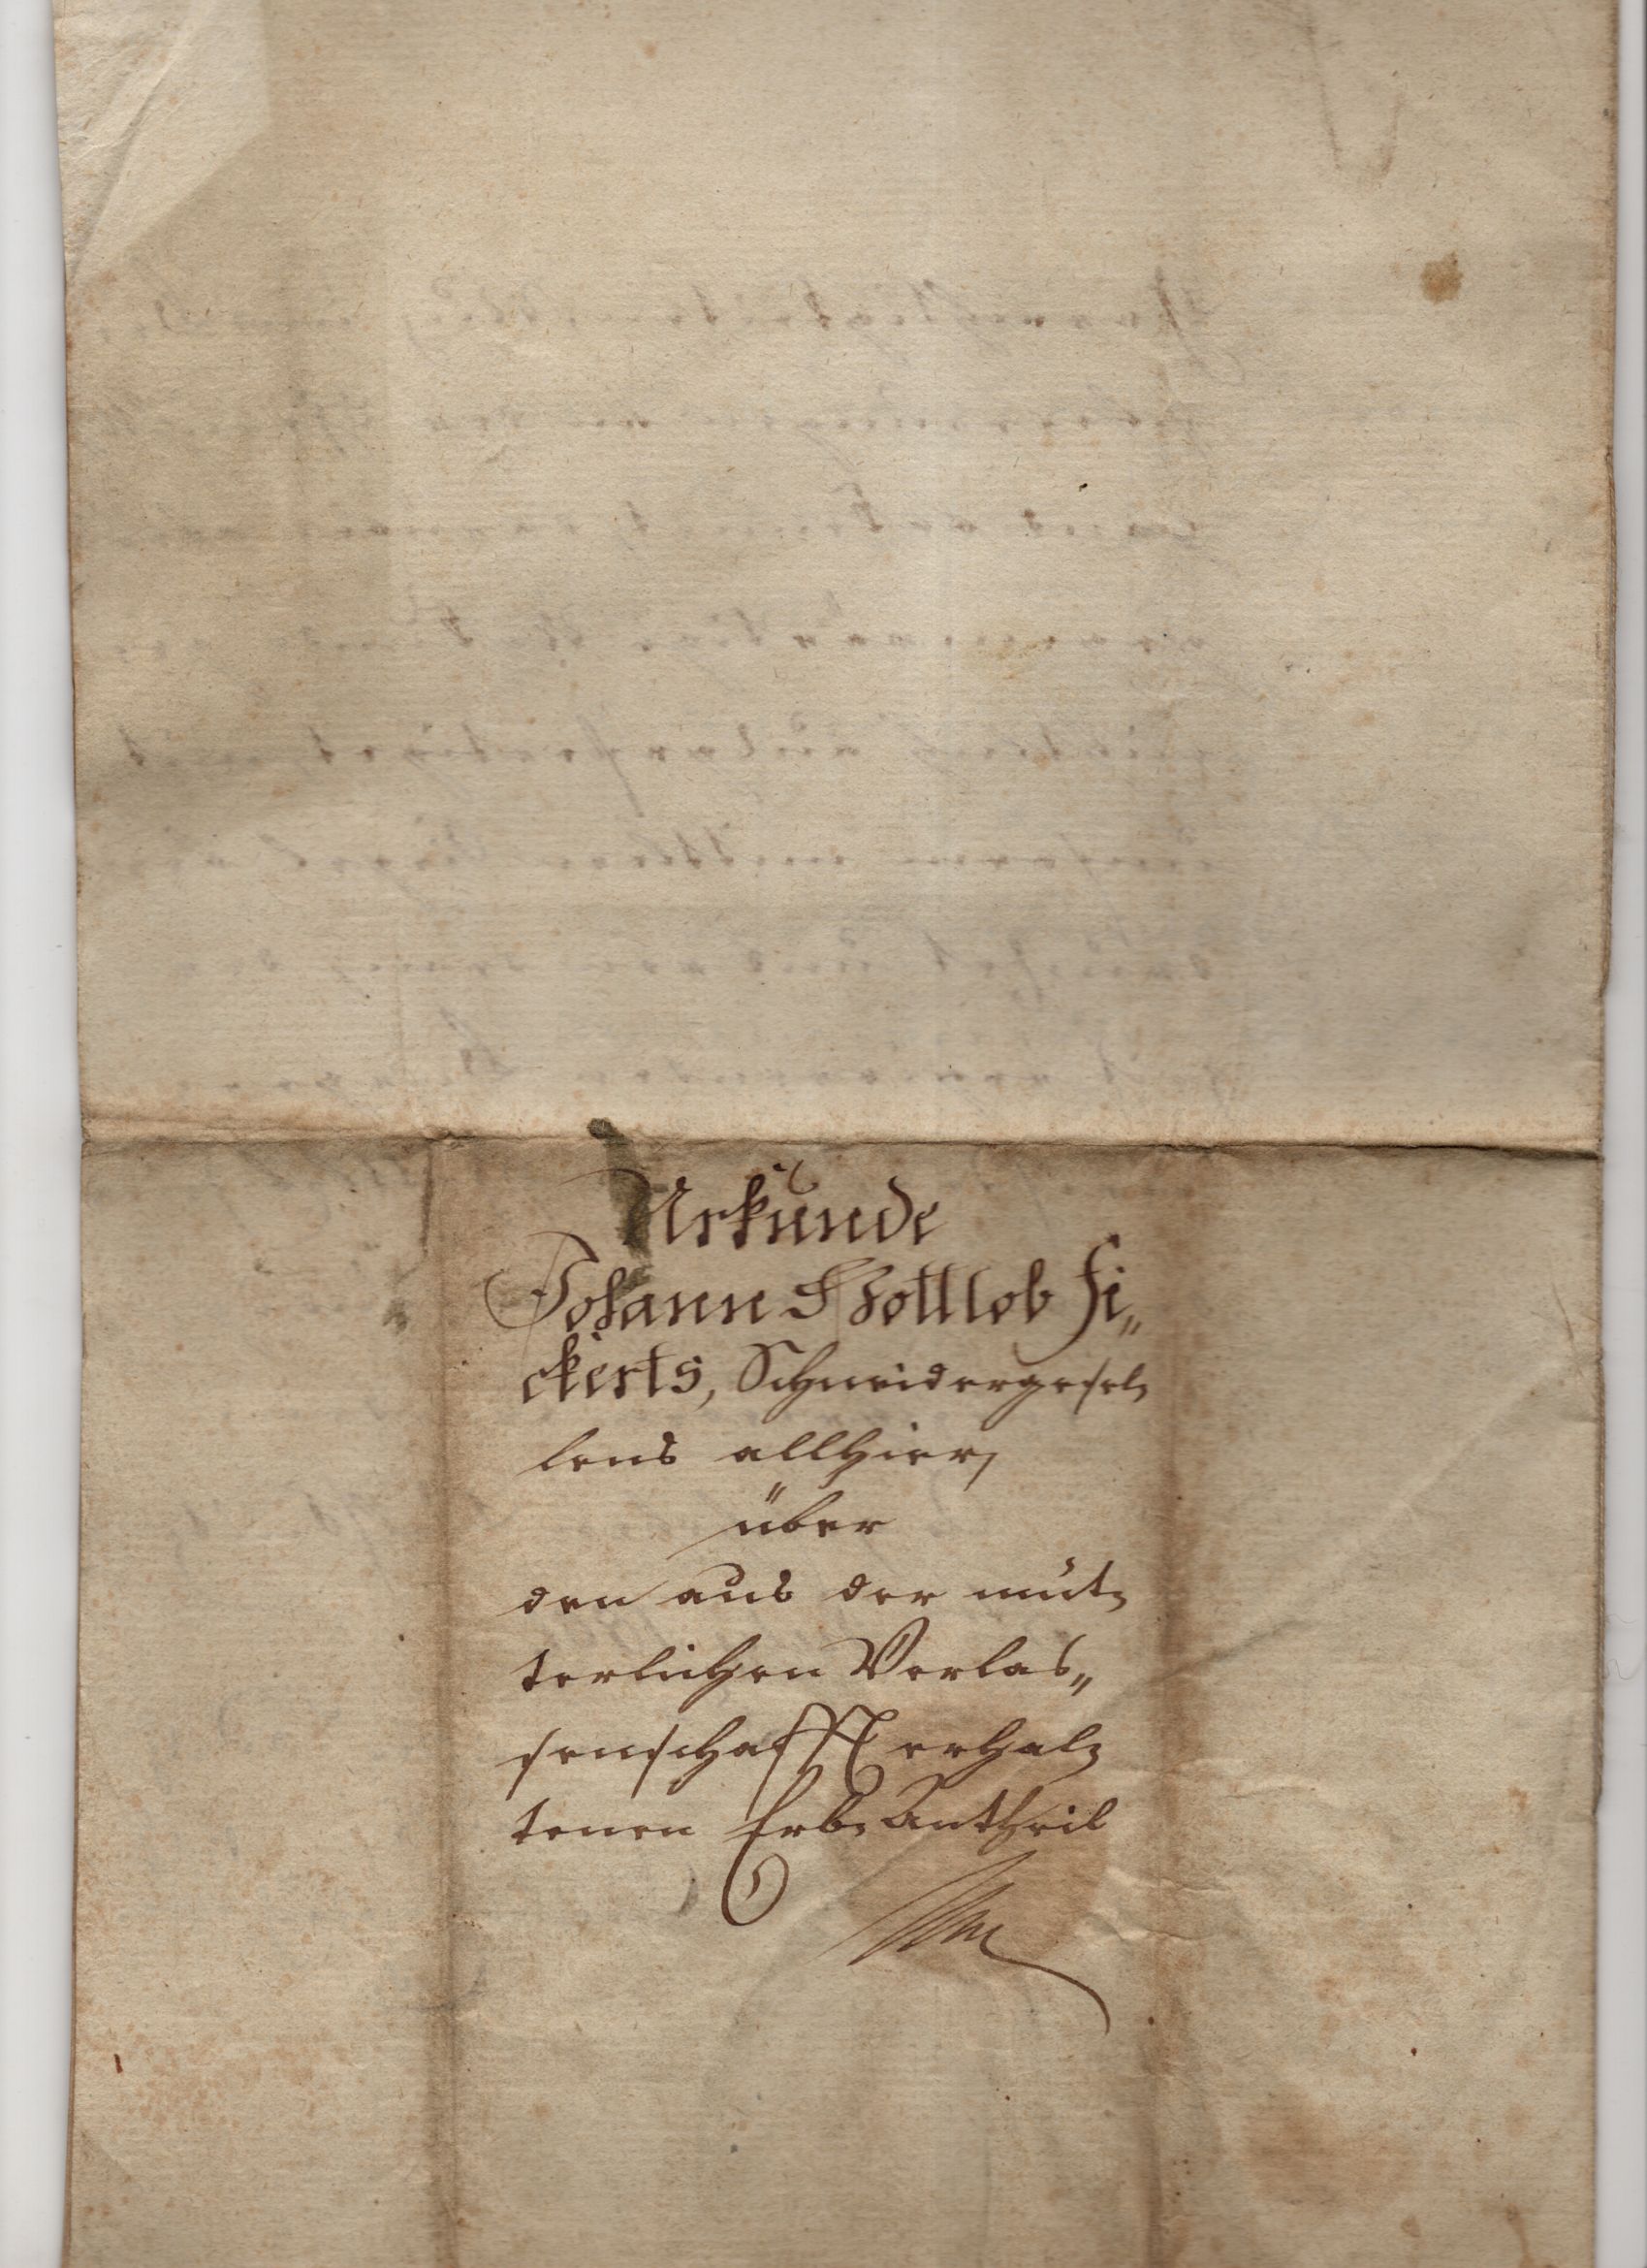 Urkunde
Johann Gottlob Fi„
ckerts, Schneidergesel-
lens allhier,
über
den aus der müt-
terlichen Verlas„
senschafft erhal-
tenen Erb-Antheil